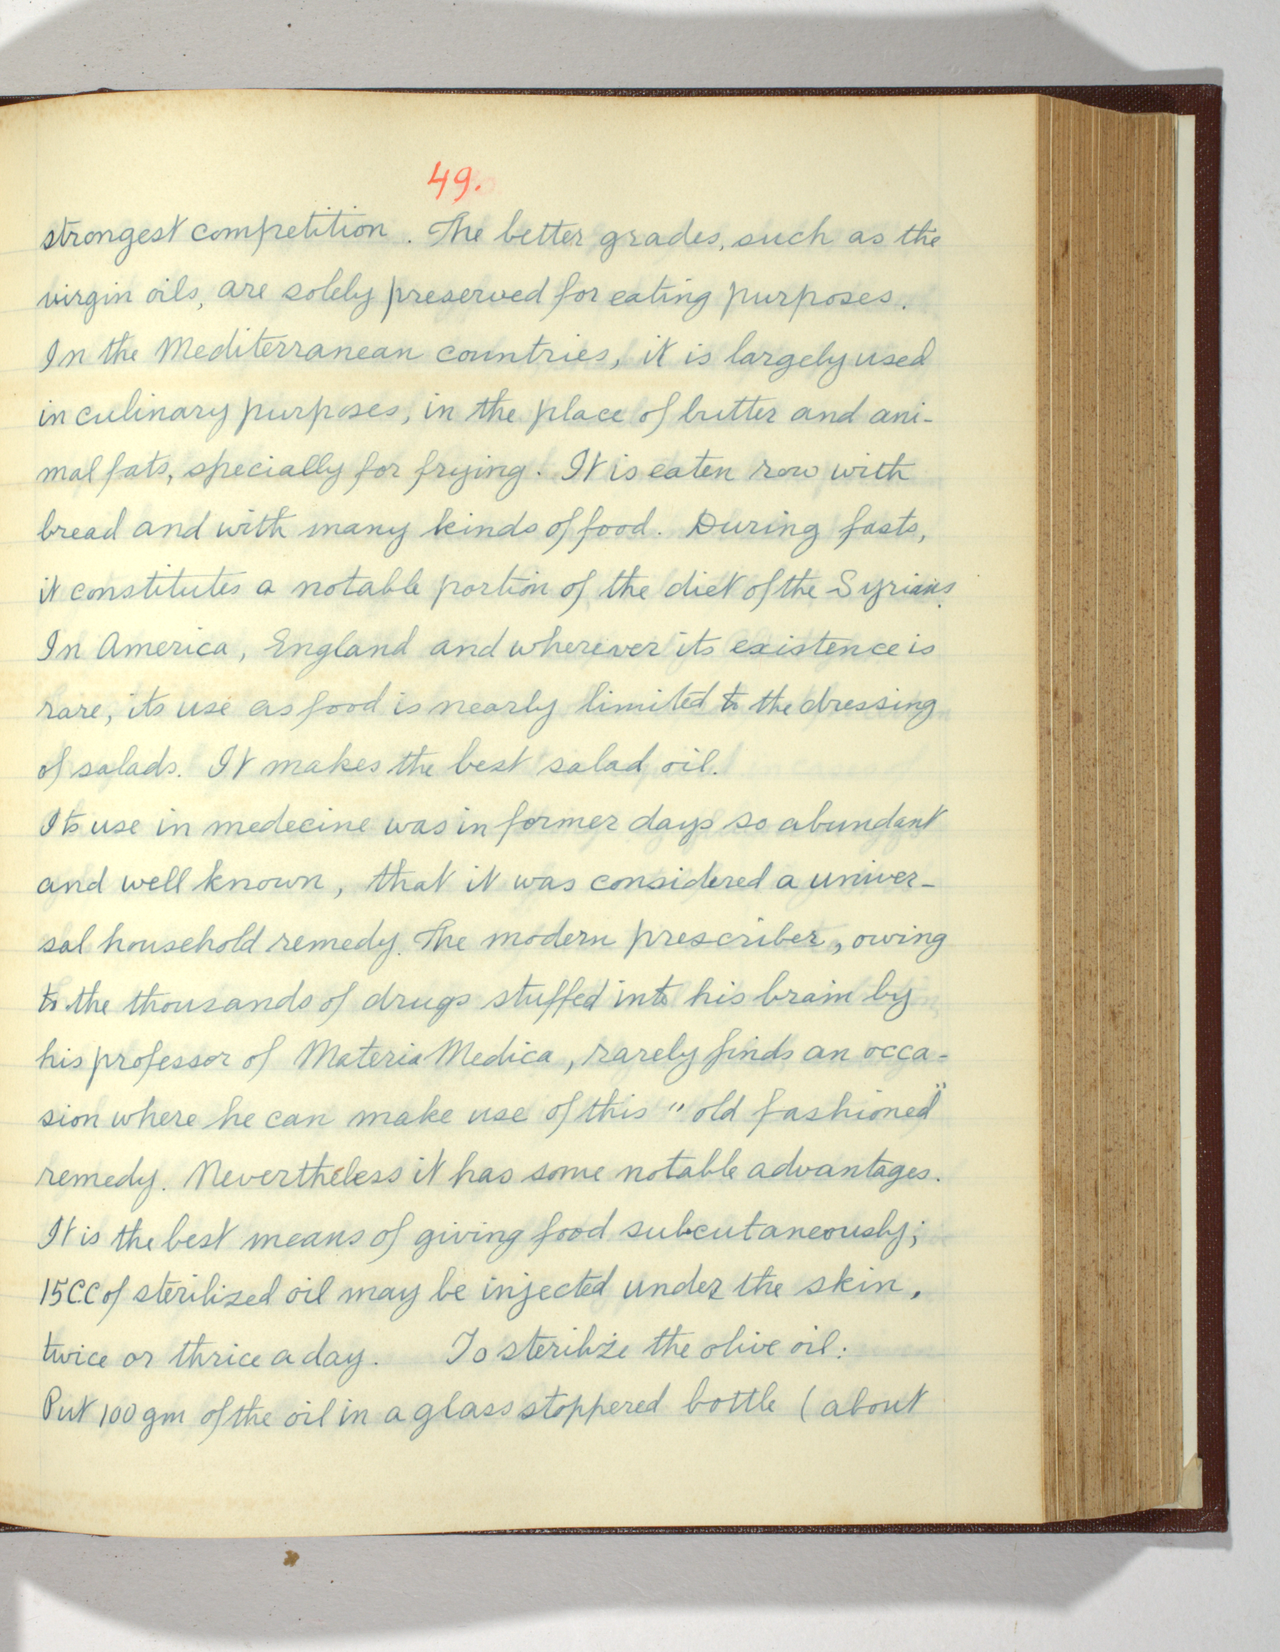 49.
strongest competition. The better grades, such as the
virgin oils, are solely preserved for eating purposes.
In the Mediterranean countries, it is largely used
in culinary purposes, in the place of butter and ani-
mal fats, specially for frying. It is eaten row with
bread and with many kinds of food. During fasts,
it constitutes a notable portion of the diet of the Syrians.
In America, England and wherever its existence is
rare, its use as food is nearly limited to the dressing
of salads. It makes the best salad oil.
Its use in medecine was in former days so abundant
and well known, that it was considered a univer-
sal household remedy. The modern prescriber, owing
to the thousands of drugs stuffed into his brain by
his professor of Materia Medica, rarely finds an occa-
sion where he can make use of this "old fashioned"
remedy. Nevertheless it has some notable advantages.
It is the best means of giving food subcutaneously;
15CC of sterilized oil may be injected under the skin,
twice or thrice a day. To sterilize the olive oil:
Put 100 gm of the oil in a glass stoppered bottle (about